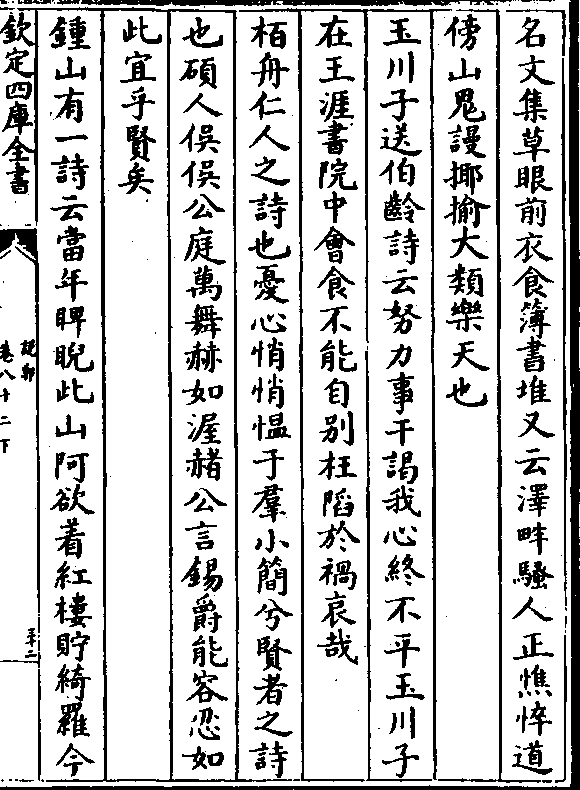 名文集草眼前衣食簿書堆又云澤畔騷人正憔悴道
傍山鬼謾揶揄大類樂天也
玉川子送伯齡詩云努力事干謁我心終不平玉川子
在王涯書院中會食不能自别枉陷於禍哀哉
栢舟仁人之詩也憂心悄悄愠于羣小簡兮賢者之詩
也碩人俁俁公庭萬舞赫如渥赭公言錫爵能容忍如
此宜乎賢矣
鍾山有一詩云當年睥睨此山阿欲着紅樓貯綺羅今
欽定四庫全書
説郛
卷八十二下